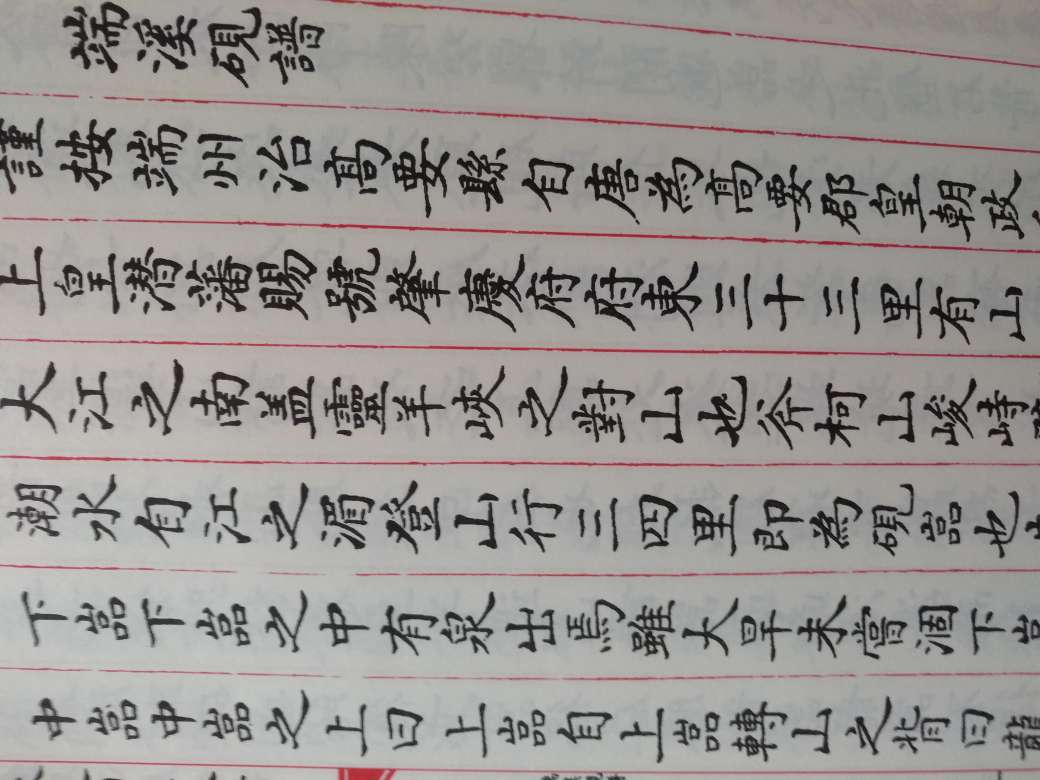 端溪硯譜
謹按端州治高要縣自唐為高要郡皇朝政
上皇潛藩賜號肇慶府府東三十三里有山
大江之南蓋靈羊峽之對山也斧柯山峻峙
潮水自江之湄登山行三四里即為硯嵓也
下嵓下嵓之中有泉出焉雖大旱未嘗涸下嵓
中嵓中嵓之上曰上嵓自上嵓轉山之背曰龍